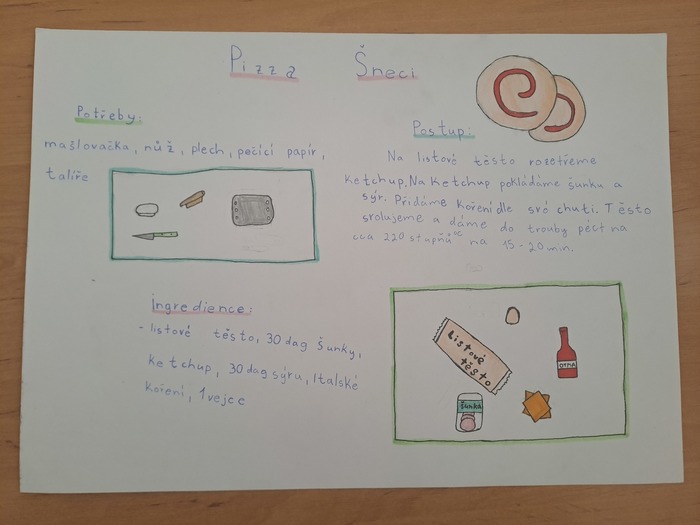 Pizza Šneci
Potřeby:
mašlovačka, nůž, plech, pečící papír,
talíře
Postup:
Na listové těsto rozetřeme
ketchup. Na ketchup pokládáme šunku a
sýr. Přidáme koření dle své chuti. Těsto
srolujeme a dáme do trouby péct na
cca 220 stupňů °C na 15-20 min.
Ingredience:
- listové těsto, 30 dag šunky,
ketchup, 30 dag sýru, Italské
koření, 1 vejce
Listové
těsto
Šunka